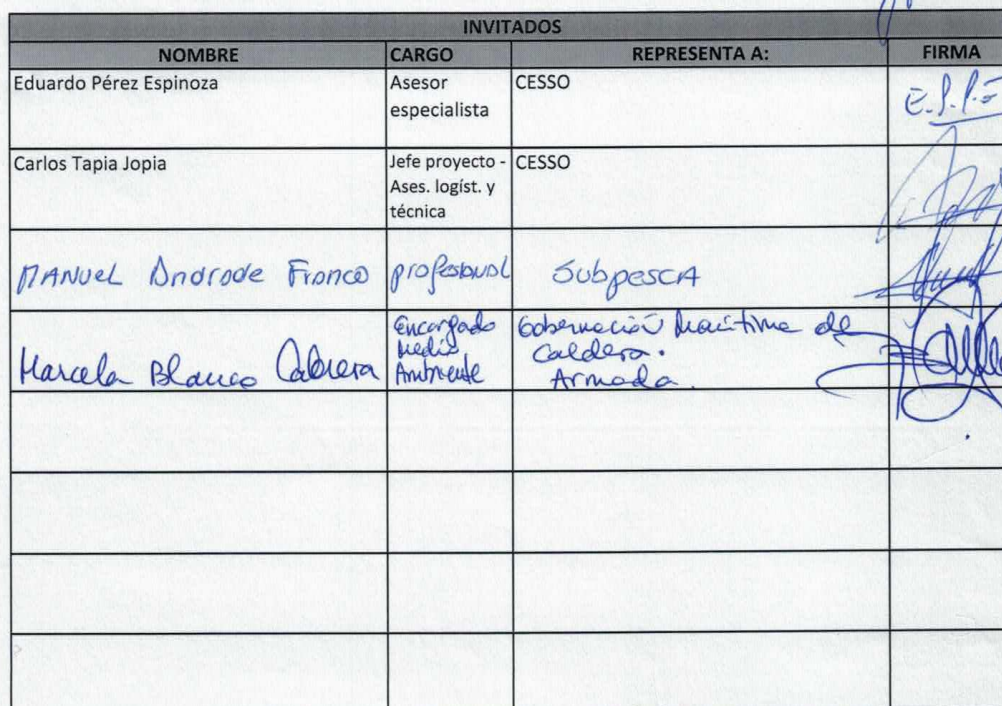 INVITADOS
NOMBRE CARGO REPRESENTA A: FIRMA
Eduardo Pérez Espinoza Asesor especialista CESSO E.P.P.E
Carlos Tapia Jopia Jefe proyecto - Ases. logíst. y técnica CESSO
MANUEL Andrade Franco profesional SubpescA
Marcela Blanco Cabrera Encargado Medio Ambiente Gobernación Marítima de Caldera. Armada.